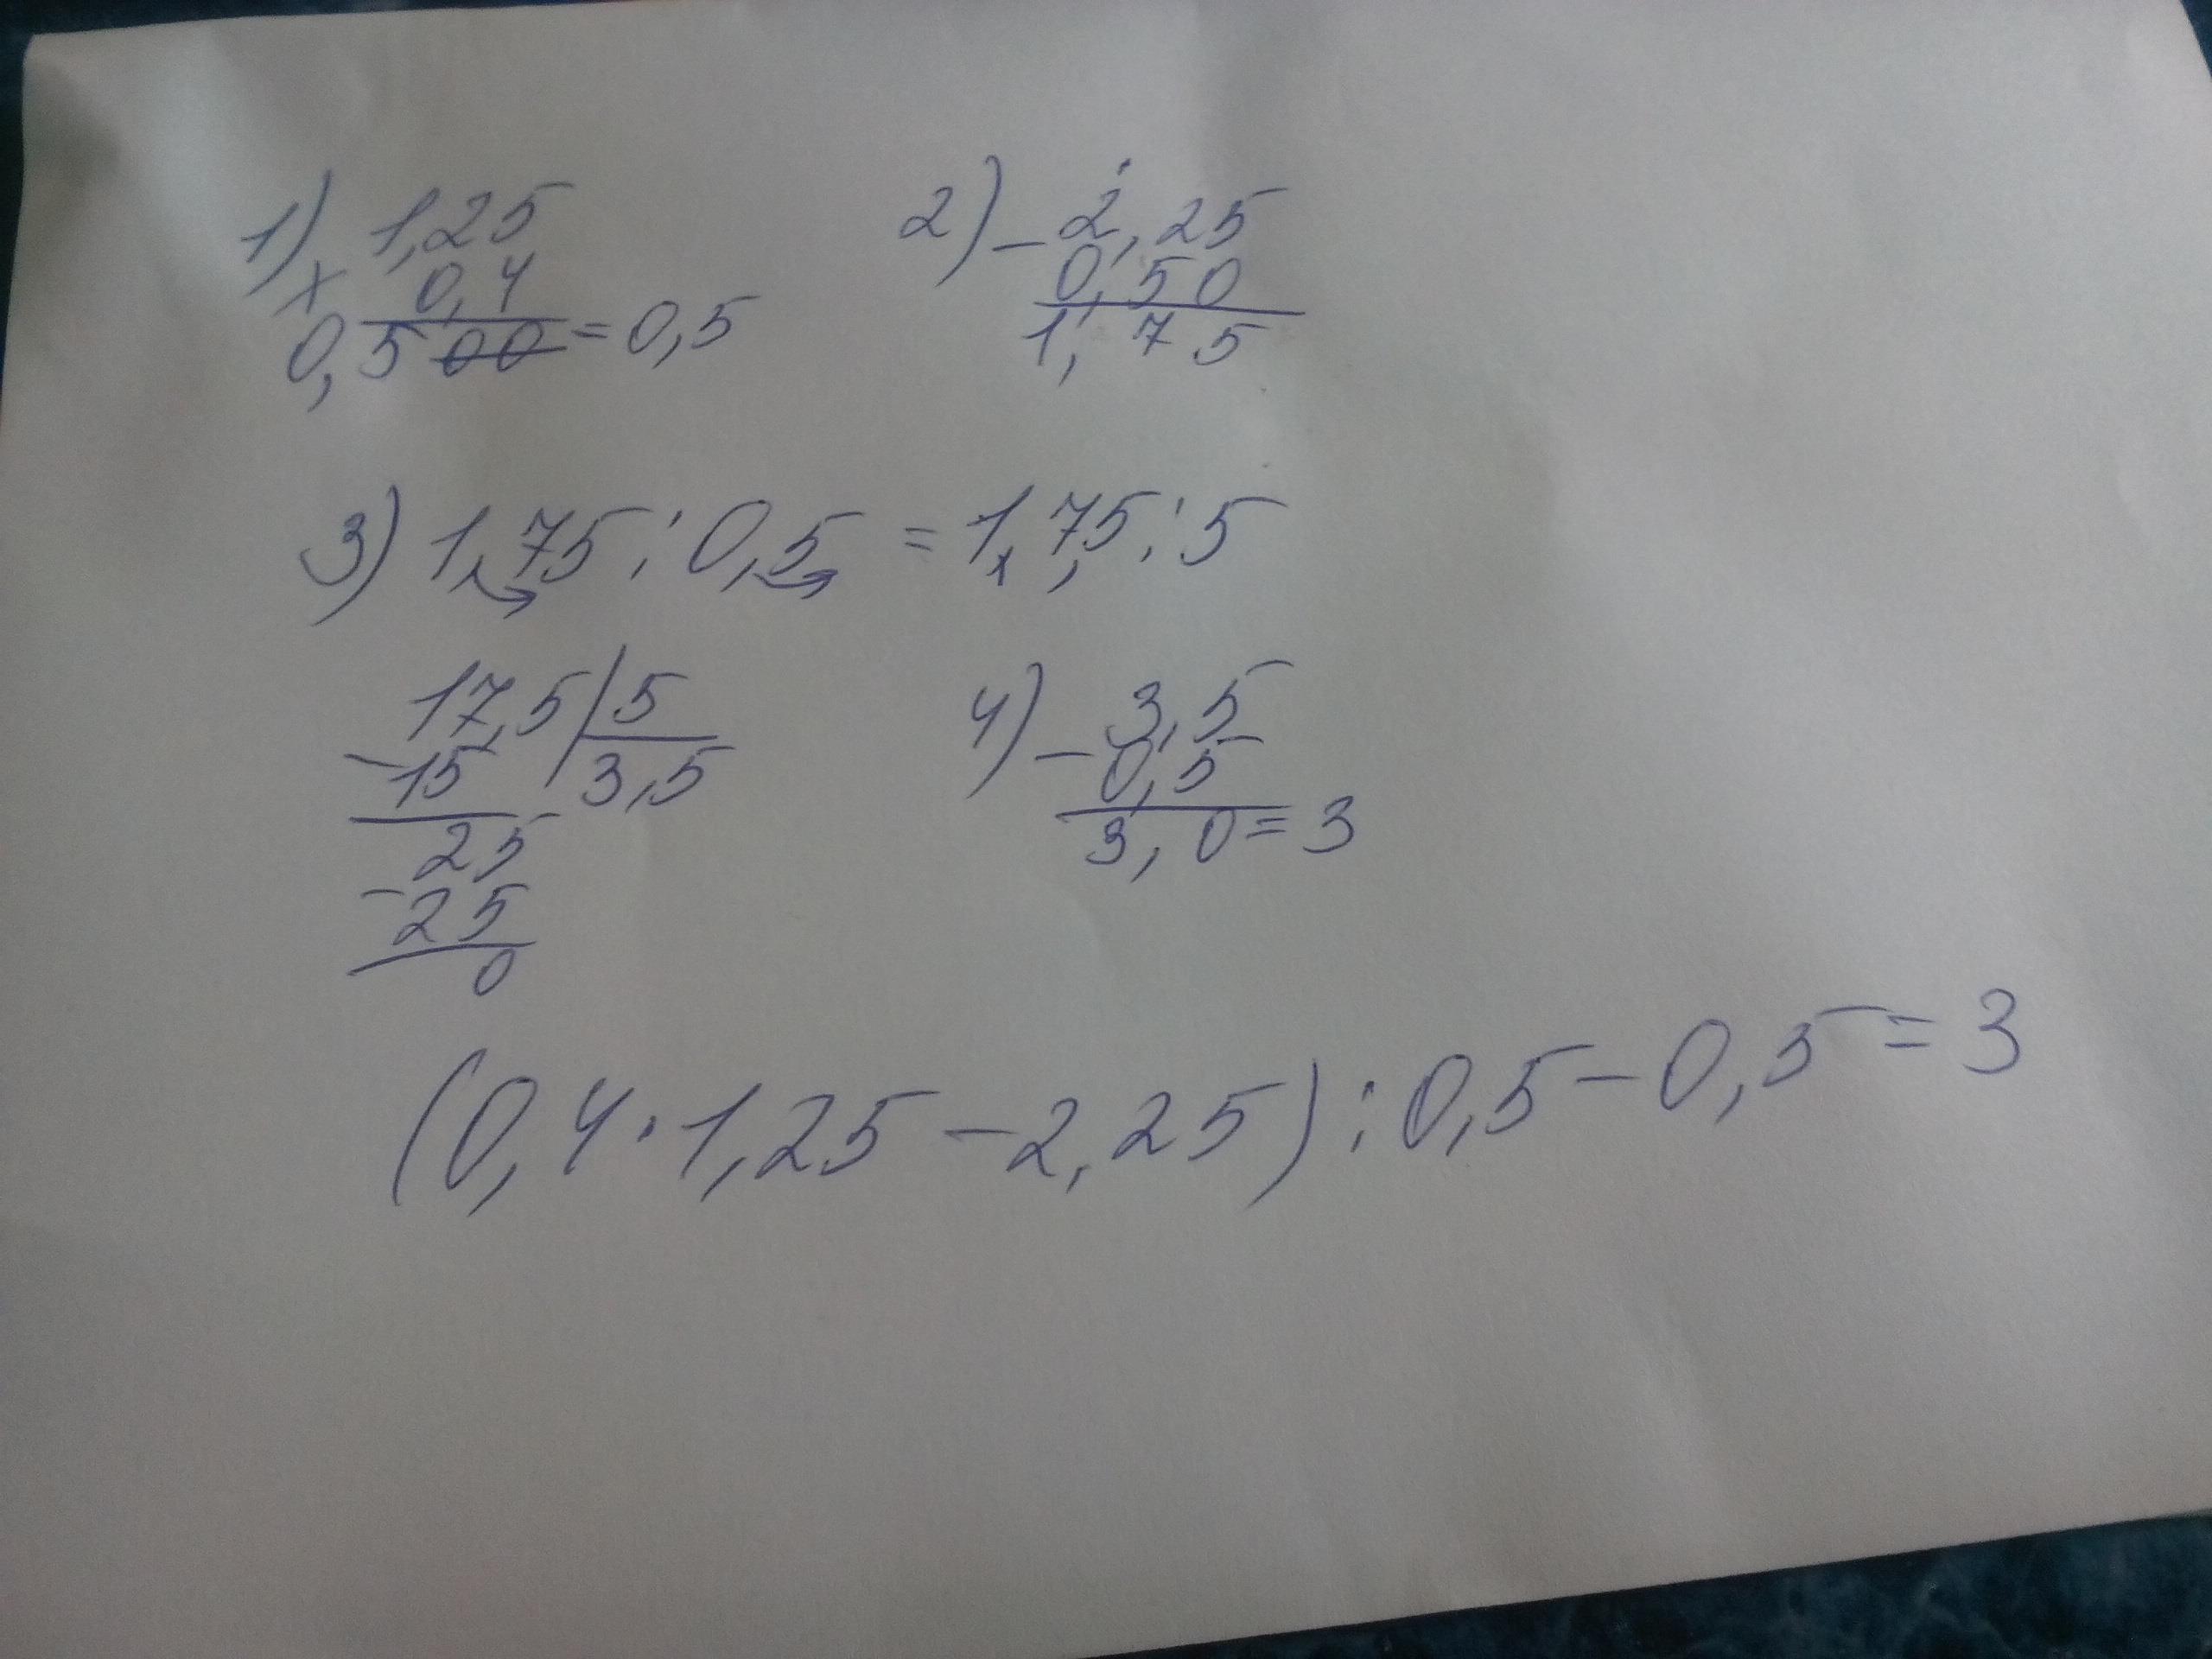 1) 1,25
× 0,4
0,500 = 0,5
2) - 2,25
0,50
1,75
3) 1,75 : 0,5 = 1,7,5 : 5
17,5 | 5
- 15 3,5
25
- 25
0
4) - 3,5
0,5
3,0 = 3
(0,4 · 1,25 - 2,25) : 0,5 - 0,5 = 3